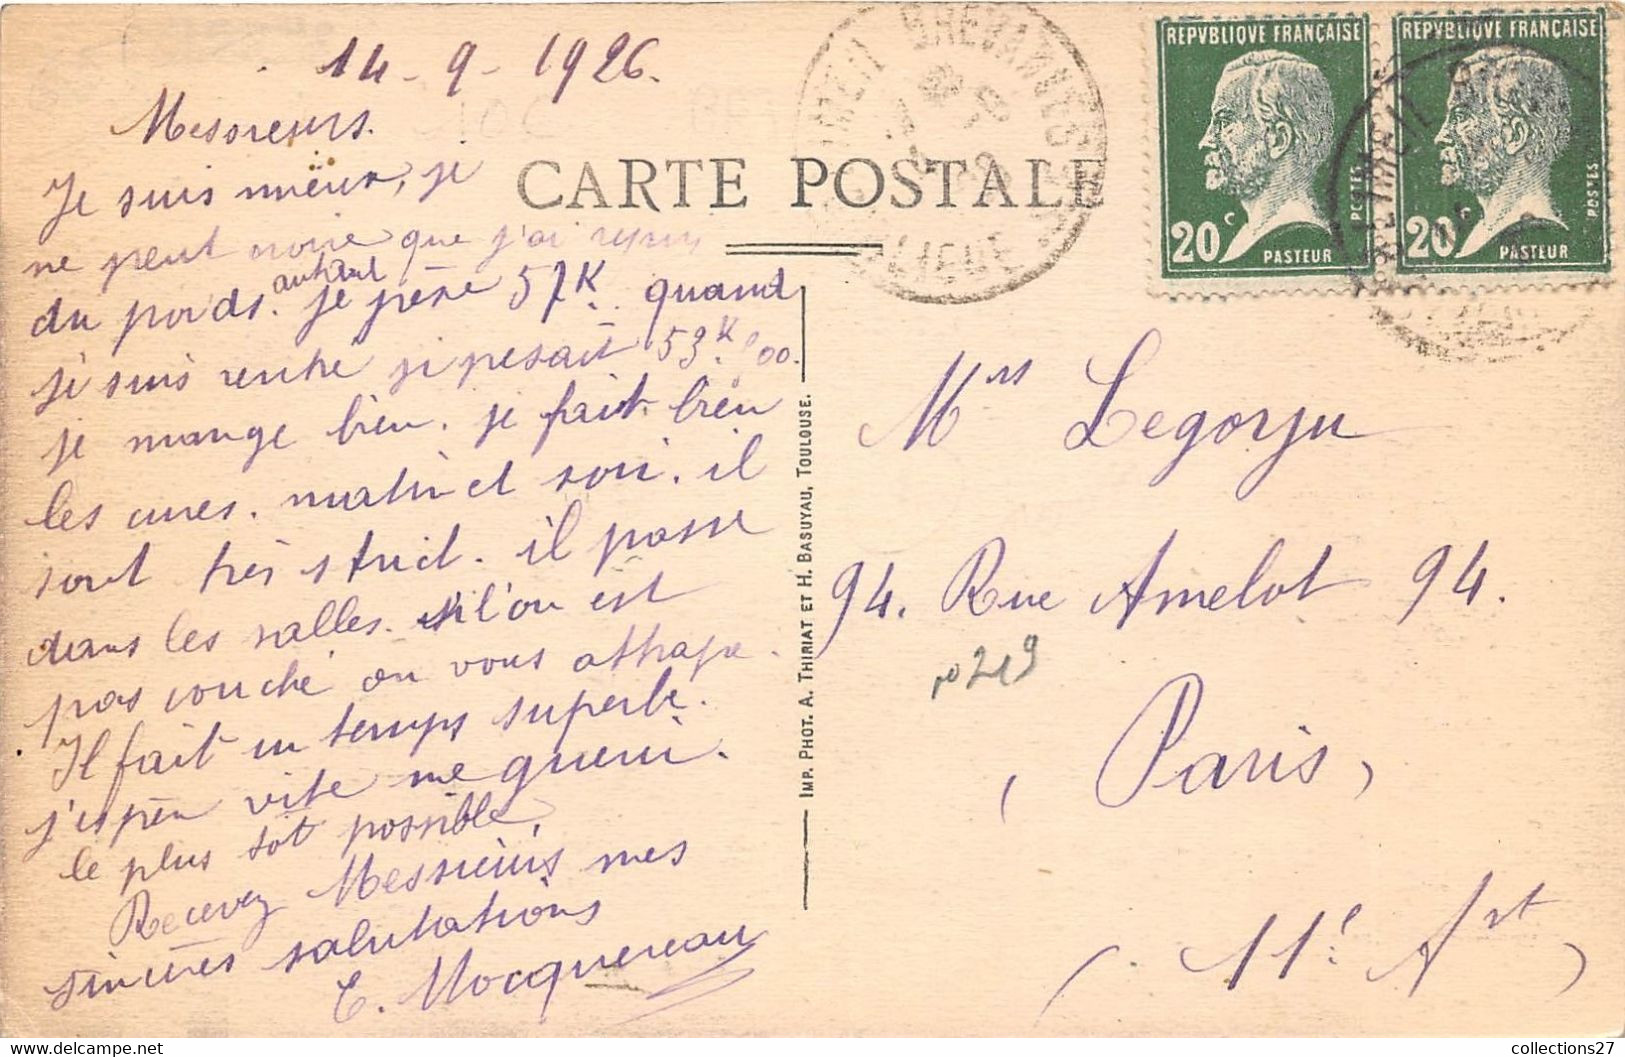 14-9-1926.
Messieurs.
Je suis mieux, je
ne peut croire que j'ai repris
autant
du poids. Je pèse 57K. quand
je suis rentré je pesait 53K 500.
je mange bien. je fait bien
les cures. matin et soir. il
sont très strict. il passe
dans les salles. si l'on est
pas couché on vous attrape.
Il fait un temps superbe.
j'espère vite me guerir.
le plus tôt possible.
Recevez Messieurs mes
sincères salutations
E. Mocquereau
CARTE POSTALE
IMP. PHOT. A. THIRIAT ET H. BASUYAU, TOULOUSE.
REPVBLIQVE FRANÇAISE
POSTES
20c
PASTEUR
REPVBLIQVE FRANÇAISE
POSTES
20c
PASTEUR
LIMEIL BREVANNES
Mrs Legorju
94. Rue Amelot 94.
(Paris)
(11e Art)
collections27